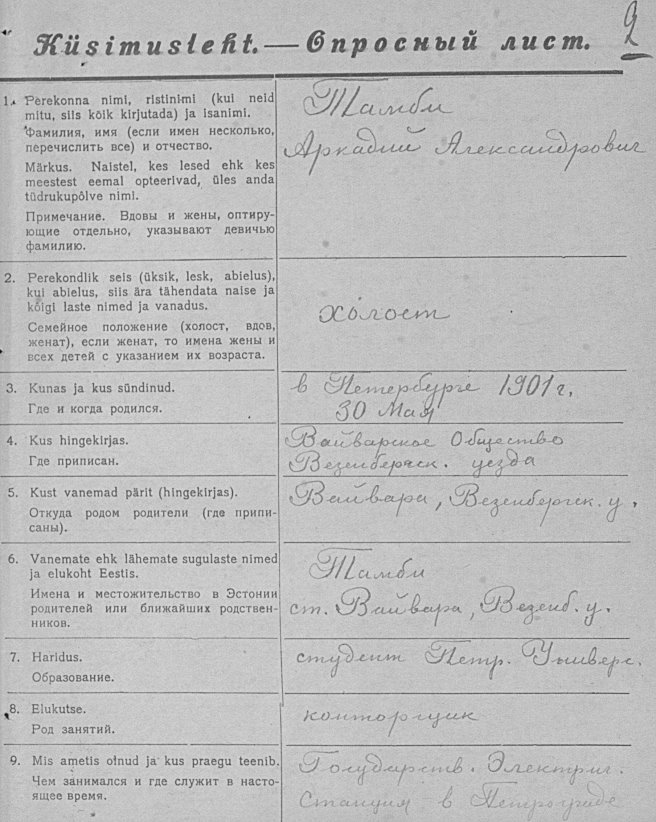 2
Küsimusleht. — Опросный лист.
1. Perekonna nimi, ristinimi (kui neid
mitu, siis kõik kirjutada) ja isanimi.
Фамилия, имя (если имен несколько,
перечислить все) и отчество.
Märkus. Naistel, kes lesed ehk kes
meestest eemal opteerivad, üles anda
tüdrukupõlve nimi.
Примечание. Вдовы и жены, оптиру-
ющие отдельно, указывают девичью
фамилию.
Тамби
Аркадий Александрович
2. Perekondlik seis (üksik, lesk, abielus),
kui abielus, siis ära tähendata naise ja
kõigi laste nimed ja vanadus.
Семейное положение (холост, вдов,
женат), если женат, то имена жены и
всех детей с указанием их возраста.
холост
3. Kunas ja kus sündinud.
Где и когда родился.
в Петербурге 1901 г.
30 Мая
4. Kus hingekirjas.
Где приписан.
Вайварское Общество
Везенбергск. уезда
5. Kust vanemad pärit (hingekirjas).
Откуда родом родители (где припи-
саны).
Вайвара, Везенбергск. у.
6. Vanemate ehk lähemate sugulaste nimed
ja elukoht Eestis.
Имена и местожительство в Эстонии
родителей или ближайших родствен-
ников.
Тамби
ст. Вайвара, Везенб. у.
7. Haridus.
Образование.
студент Петр. Универс.
8. Elukutse.
Род занятий.
конторщик
9. Mis ametis olnud ja kus praegu teenib.
Чем занимался и где служит в насто-
ящее время.
Государств. Электрич.
Станция в Петрограде